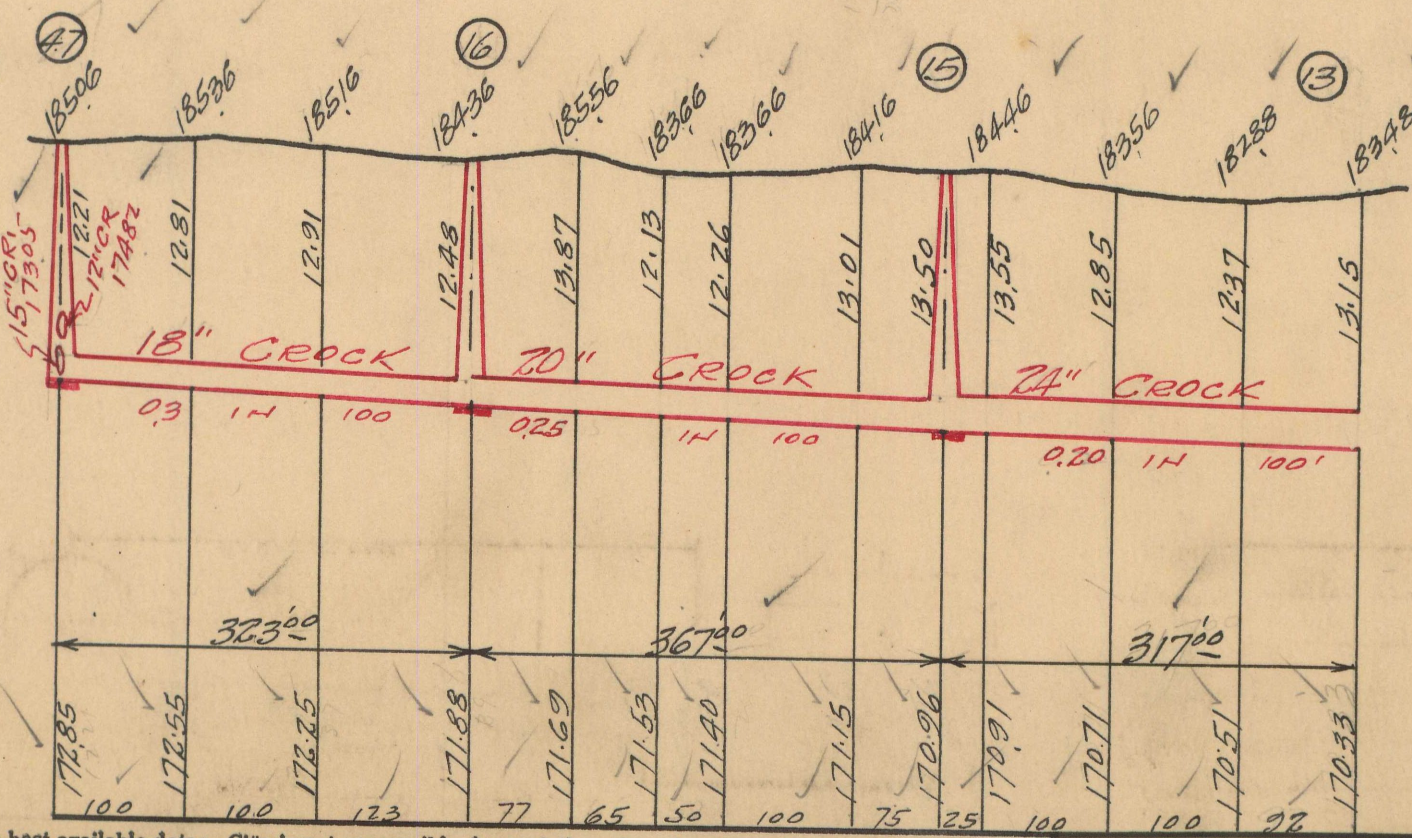 47 16 15 13
185.06 185.36 185.16 184.36 185.56 183.66 183.66 184.16 184.46 183.56 182.88 183.48
15" CR. 173.05
12.21
12" CR 174.82
12.81 12.91 12.48 13.87 12.13 12.26 13.01 13.50 13.55 12.85 12.37 13.15
18" CROCK 20" CROCK 24" CROCK
0.3 IN 100 0.25 IN 100 0.20 IN 100'
323'00 367'00 317'00
172.85 172.55 172.25 171.88 171.69 171.53 171.40 171.15 170.96 170.91 170.71 170.51 170.33
100 100 123 77 65 50 100 75 25 100 100 92